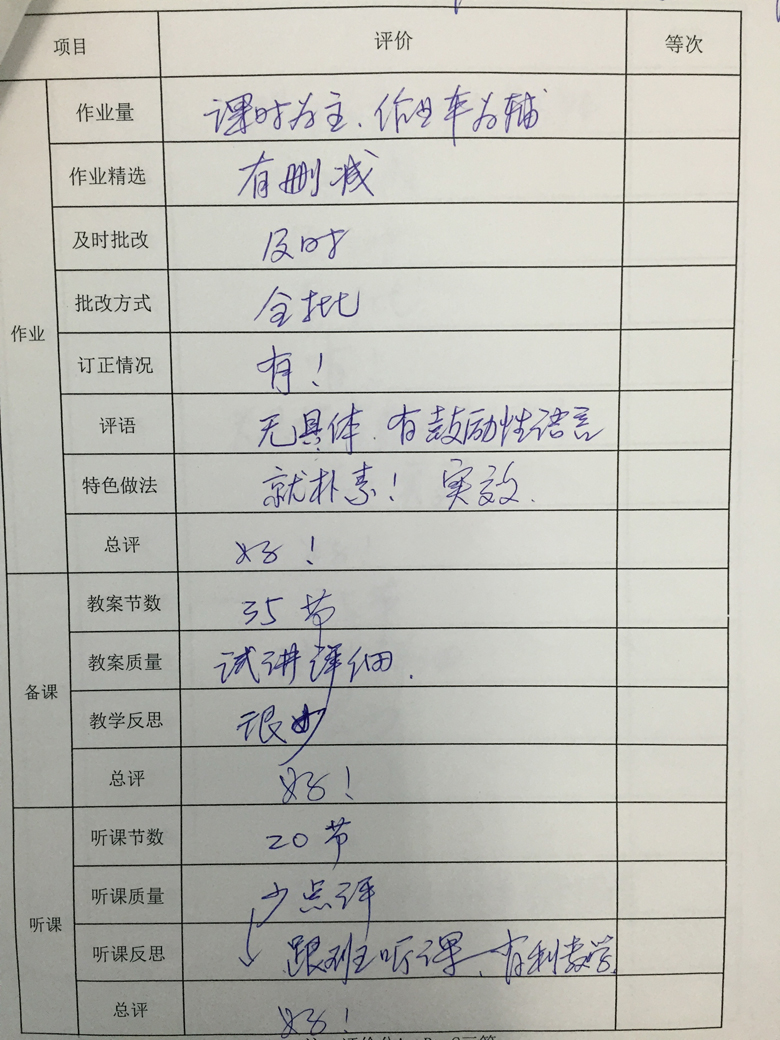 项目 评价 等次
作业
作业量 课时为主、作业本为辅
作业精选 有删减
及时批改 及时
批改方式 全批
订正情况 有！
评语 无具体、有鼓励性语言
特色做法 就朴素！ 实效.
总评 好！
备课
教案节数 35节
教案质量 试讲详细.
教学反思
总评 好！
听课
听课节数 20节
听课质量 少点评
听课反思 跟班听课、有利教学
总评 好！